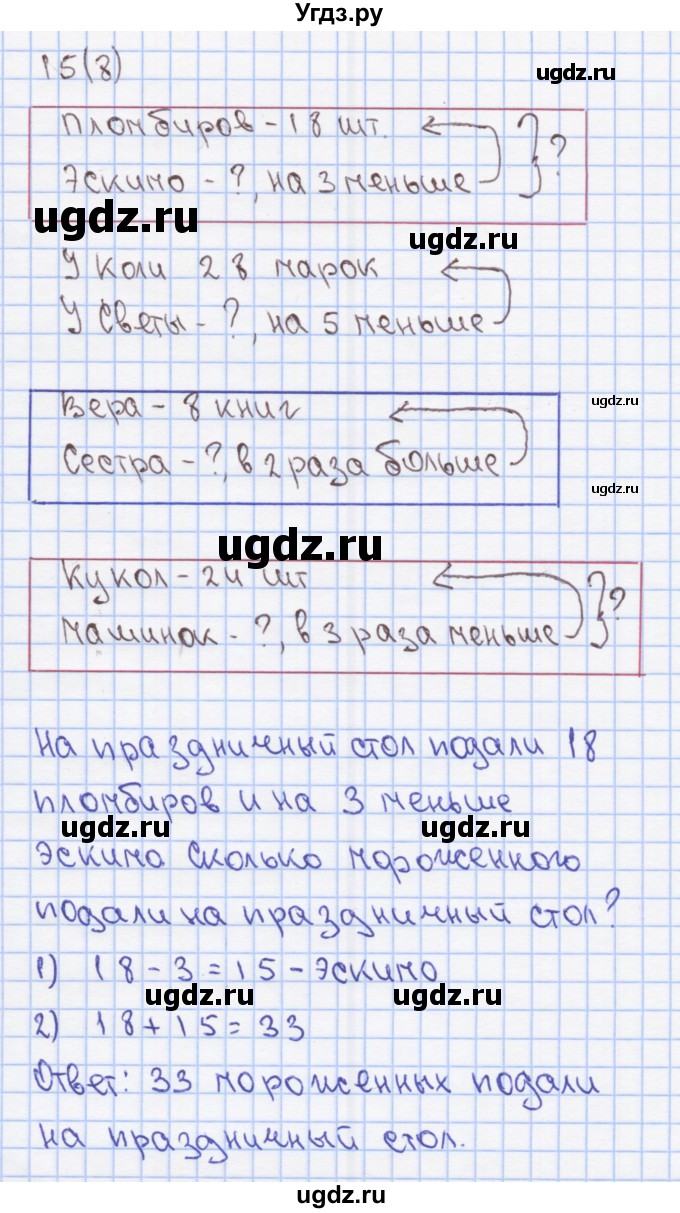 Угдз.ру
15(8)
ugdz.ru
Пломбиров - 18 шт.
?
Эскимо - ?, на 3 меньше
ugdz.ru
ugdz.ru
У Коли 28 марок
У Светы - ?, на 5 меньше
Вера - 8 книг
ugdz.ru
Сестра - ?, в 2 раза больше
ugdz.ru
ugdz.ru
Кукол - 24 шт
?
Машинок - ?, в 3 раза меньше
На праздничный стол подали 18
пломбиров и на 3 меньше
ugdz.ru ugdz.ru
эскимо Сколько мороженного
подали на праздничный стол?
1) 18 - 3 = 15 - эскимо
ugdz.ru ugdz.ru
2) 18 + 15 = 33
Ответ: 33 мороженных подали
на праздничный стол.
ugdz.ru